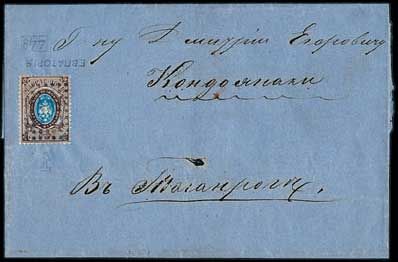 Г-ну Дмитрію Егоровичу
Кондоянаки
ЕВПАТОРІЯ
Въ Таганрогъ.